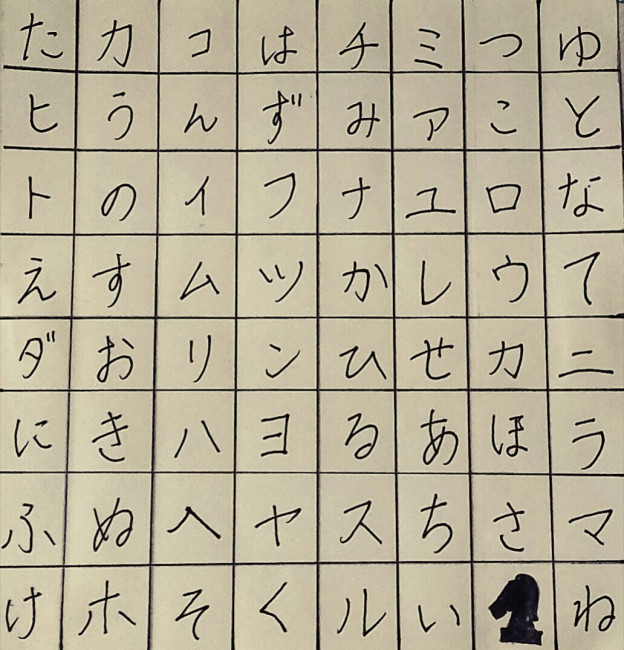 た カ コ は チ ミ つ ゆ
ヒ う ん ず み ア こ と
ト の イ フ ナ ユ ロ な
え す ム ツ か し ウ て
ダ お リ ン ひ せ カ ニ
に き ハ ヨ る あ ほ ラ
ふ ぬ へ ヤ ス ち さ マ
け ホ そ く ル い ね